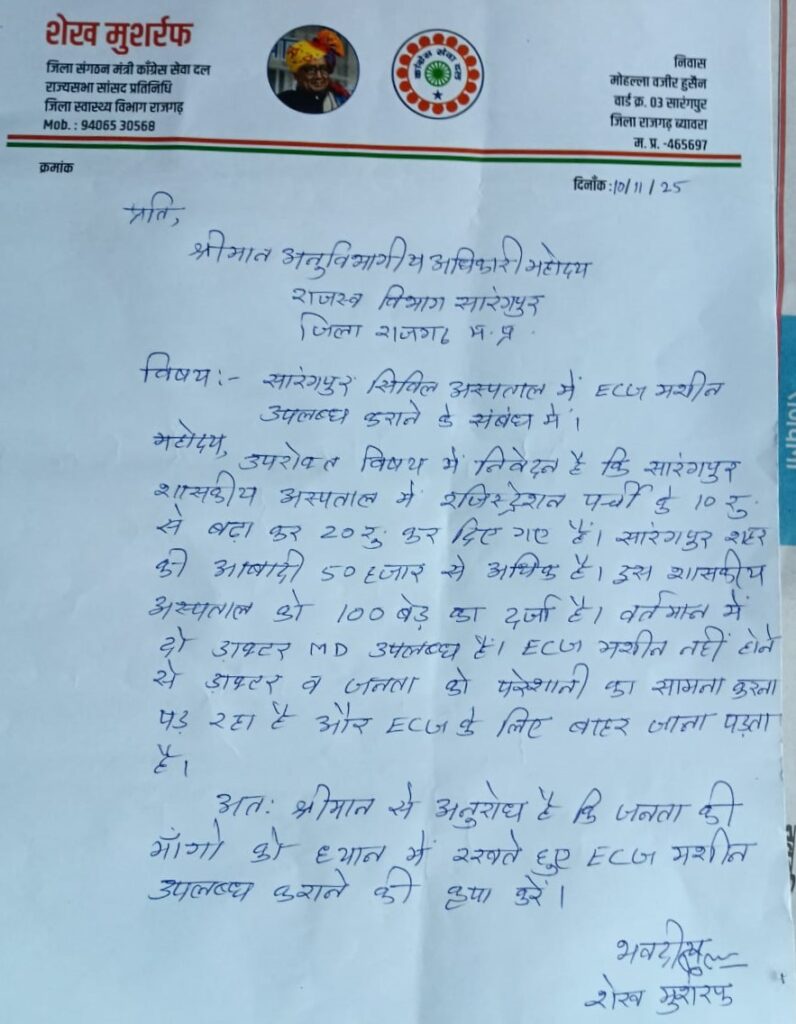 शेख मुशर्रफ
जिला संगठन मंत्री काँग्रेस सेवा दल
राज्यसभा सांसद प्रतिनिधि
जिला स्वास्थ्य विभाग राजगढ़
Mob. : 94065 30568
काँग्रेस सेवा दल
निवास
मोहल्ला वजीर हुसैन
वार्ड क्र. 03 सारंगपुर
जिला राजगढ़ ब्यावरा
म. प्र. -465697
क्रमांक
दिनाँक :10/11/25
प्रति,
श्रीमान अनुविभागीय अधिकारी महोदय
राजस्व विभाग सारंगपुर
जिला राजगढ़ म.प्र.
विषय:- सारंगपुर सिविल अस्पताल में ECG मशीन
उपलब्ध कराने के संबंध में।
महोदय,
उपरोक्त विषय में निवेदन है कि सारंगपुर
शासकीय अस्पताल में रजिस्ट्रेशन पर्ची के 10 रु.
से बढ़ा कर 20 रु. कर दिए गए हैं। सारंगपुर शहर
की आबादी 50 हजार से अधिक है। इस शासकीय
अस्पताल को 100 बेड का दर्जा है। वर्तमान में
दो डाक्टर MD उपलब्ध हैं। ECG मशीन नहीं होने
से डाक्टर व जनता को परेशानी का सामना करना
पड़ रहा है और ECG के लिए बाहर जाना पड़ता
है।
अतः श्रीमान से अनुरोध है कि जनता की
माँगो को ध्यान में रखते हुए ECG मशीन
उपलब्ध कराने की कृपा करें।
भवदीय
शेख मुशर्रफ